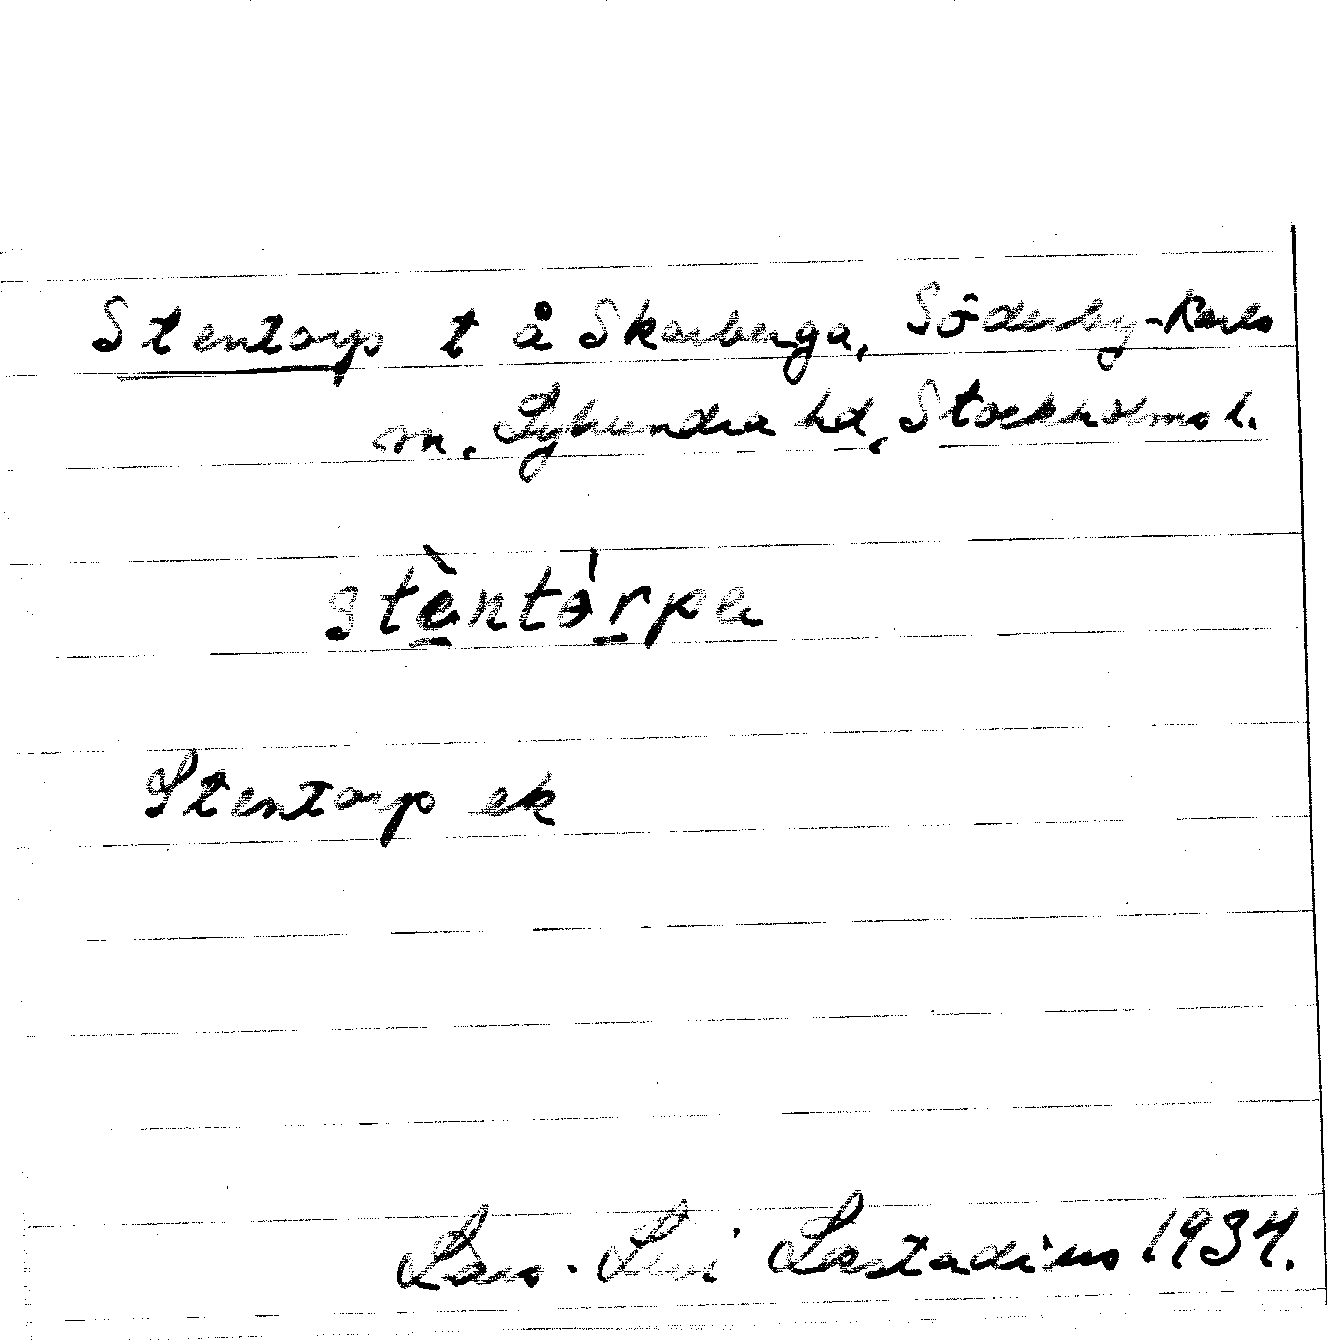 Stentorp t å Skarberga, Söderby-Karls
sn. Lyhundra hd, Stockholms l.
stèntórpa
Stentorp ek
Lars-Levi Læstadius 1934.